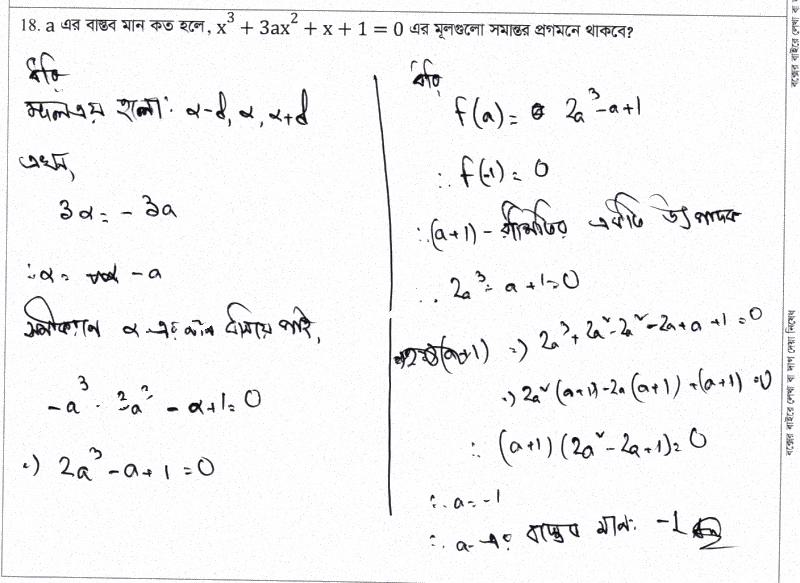 18. a এর বাস্তব মান কত হলে, x³ + 3ax² + x + 1 = 0 এর মূলগুলো সমান্তর প্রগমনে থাকবে?
ধরি
মূলত্রয় হলো: α-d, α, α+d
এখন,
3α = -3a
∴ α = -a
সমীকরণে α এর মান বসিয়ে পাই,
-a³ + 3a³ - a + 1 = 0
⇒ 2a³ - a + 1 = 0
ধরি,
f(a) = 2a³ - a + 1
∴ f(-1) = 0
∴ (a+1) - রাশিটির একটি উৎপাদক
∴ 2a³ - a + 1 = 0
⇒ 2a³ + 2a² - 2a² - 2a + a + 1 = 0
⇒ 2a² (a+1) - 2a (a+1) + (a+1) = 0
∴ (a+1) (2a² - 2a + 1) = 0
∴ a = -1
∴ a- এর বাস্তব মান: -1
বক্সের বাইরে লেখা বা দাগ দেয়া নিষেধ